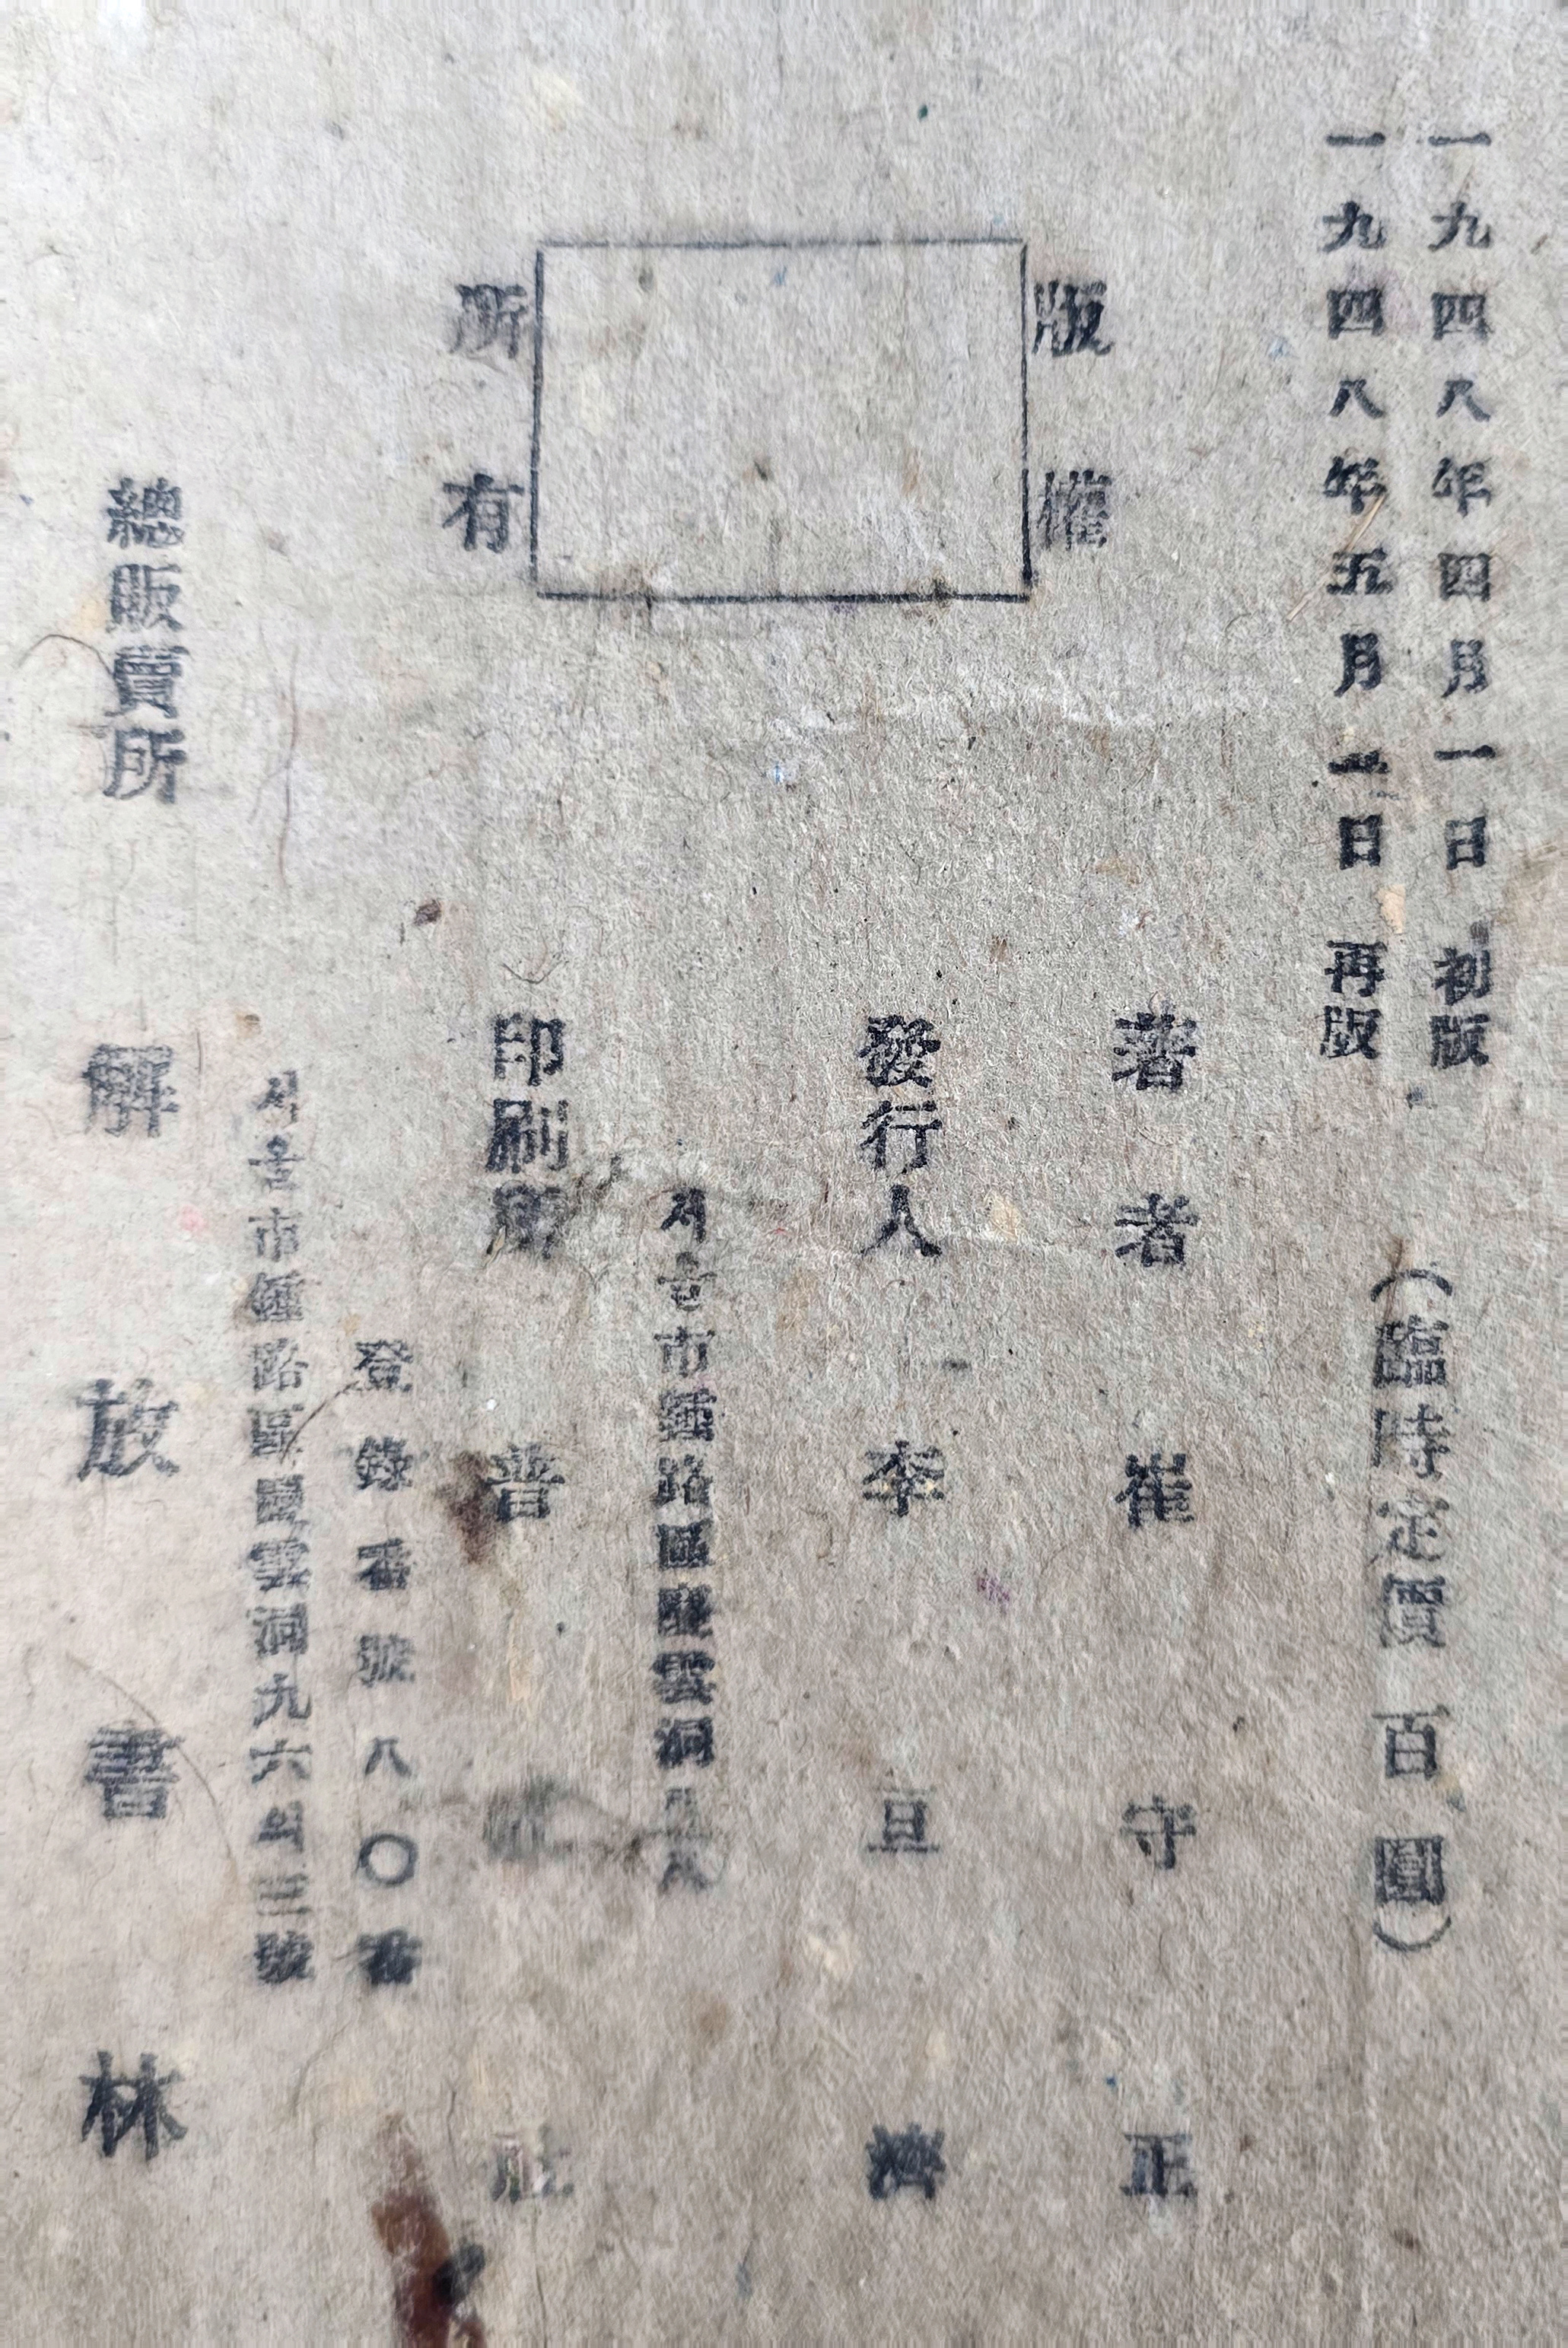 一九四八年四月一日 初版
一九四八年五月 日 再版
(臨時定價 百圓)
版權
所有
著者 崔守正
發行人 李亘濟
서울市鍾路區慶雲洞
印刷所 普 社
登錄番號八〇番
서울市鍾路區慶雲洞九六의三號
總販賣所 解放書林